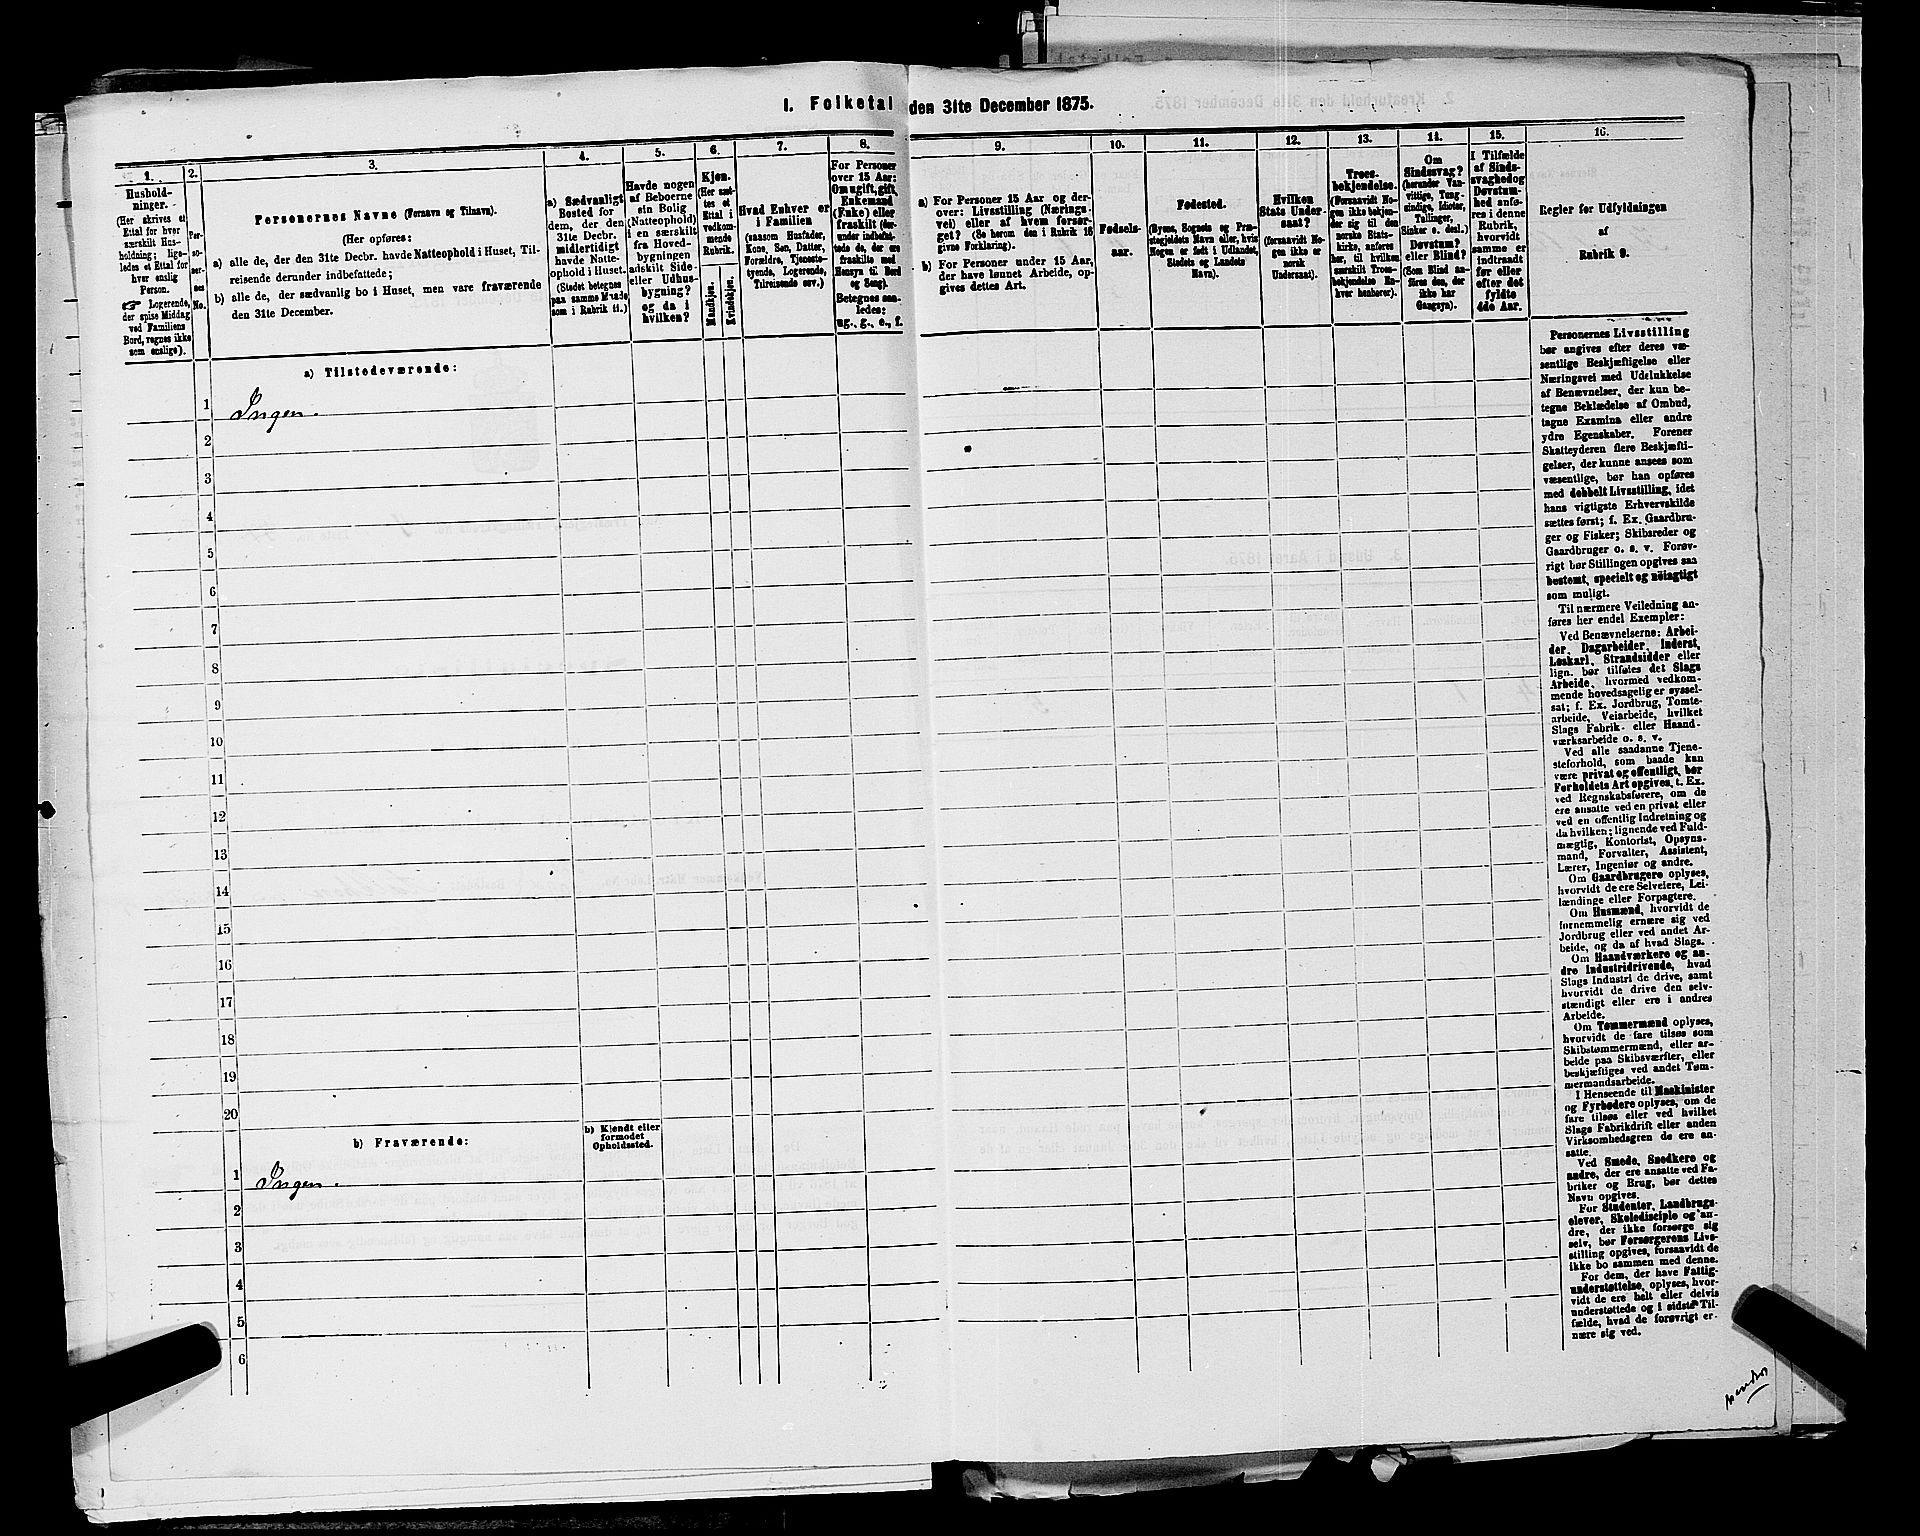 I. Folketal den 31te December 1875.
1.
Hushold-
ninger.
(Her skrives et
Ettal for hver
særskilt Hus-
holdning; lige-
ledes et Ettal for
hver enslig
Person.
☞ Logerende,
der spise Middag
ved Familiens
Bord, regnes ikke
som enslige).
2.
Per-
so-
ner-
nes
No.
3.
Personernes Navne (Fornavn og Tilnavn).
(Her opføres:
a) alle de, der den 31te Decbr. havde Natteophold i Huset, Til-
reisende derunder indbefattede;
b) alle de, der sædvanlig bo i Huset, men vare fraværende
den 31te December.
4.
a) Sædvanligt
Bosted for
dem, der den
31te Decbr.
midlertidigt
havde Natte-
ophold i Huset.
(Stedet betegnes
paa samme Maade
som i Rubrik 11.)
5.
Havde nogen
af Beboerne
sin Bolig
(Natteophold)
i en særskilt
fra Hoved-
bygningen
adskilt Side-
eller Udhus-
bygning?
og da i
hvilken?
6.
Kjøn.
(Her sæt-
tes et
Ettal i
vedkom-
mende
Rubrik.
Mandkjøn.
Kvindekjøn.
7.
Hvad Enhver er
i Familien
(saasom Husfader,
Kone, Søn, Datter,
Forældre, Tjeneste-
tyende, Logerende,
Tilreisende osv.)
8.
For Personer
over 15 Aar:
Om ugift, gift,
Enkemand
(Enke) eller
fraskilt (der-
under indbefat-
tede de, der ere
fraskilte med
Hensyn til Bord
og Seng).
Betegnes saa-
ledes:
ug., g., e., f.
9.
a) For Personer 15 Aar og der-
over: Livsstilling (Nærings-
vei) eller af hvem forsør-
get? (Se herom den i Rubrik 16
givne Forklaring).
b) For Personer under 15 Aar,
der have lønnet Arbeide, op-
gives dettes Art.
10.
Fødsels-
aar.
11.
Fødested.
(Byens, Sognets og Præ-
stegjeldets Navn eller, hvis
Nogen er født i Udlandet,
Stedets og Landets
Navn).
12.
Hvilken
Stats Under-
saat?
(forsaavidt No-
gen ikke er
norsk
Undersaat).
13.
Troes-
bekjendelse.
(Forsaavidt No-
gen ikke bekjen-
der sig til den
norske Stats-
kirke, anføres
her, til hvilken
særskilt Troes-
bekjendelse En-
hver henhører).
14.
Om
Sindssvag?
(herunder Van-
vittige, Tung-
sindige, Idioter,
Tullinger,
Sinker o. desl.)
Døvstum?
eller Blind?
(Som Blind an-
føres den, der
ikke har
Gangsyn).
15.
I Tilfælde
af Sinds-
svaghed og
Døvstum-
hed anfø-
res i denne
Rubrik,
hvorvidt
samme er
indtraadt
før eller
efter det
fyldte
4de Aar.
16.
Regler for Udfyldningen
af
Rubrik 9.
Personernes Livsstilling
bør angives efter deres væ-
sentlige Beskjæftigelse eller
Næringsvei med Udelukkelse
af Benævnelser, der kun be-
tegne Beklædelse af Ombud,
tagne Examina eller andre
ydre Egenskaber. Forener
Skatteyderen flere Beskjæfti-
gelser, der kunne ansees som
væsentlige, bør han opføres
med dobbelt Livsstilling, idet
hans vigtigste Erhvervskilde
sættes først; f. Ex. Gaardbru-
ger og Fisker; Skibsreder og
Gaardbruger o. s. v. Forøv-
rigt bør Stillingen opgives saa
bestemt, specielt og nöiagtigt
som muligt.
Til nærmere Veiledning an-
føres her endel Exempler:
Ved Benævnelserne: Arbei-
der, Dagarbeider, Inderst,
Løskarl, Strandsidder eller
lign. bør tilføies det Slags
Arbeide, hvormed vedkom-
mende hovedsagelig er syssel-
sat; f. Ex. Jordbrug, Tomte-
arbeide, Veiarbeide, hvilket
Slags Fabrik- eller Haand-
værksarbeide o. s. v.
Ved alle saadanne Tjene-
steforhold, som baade kan
være privat og offentligt, bør
Forholdets Art opgives, t. Ex.
ved Regnskabsførere, om de
ere ansatte ved en privat eller
ved en offentlig Indretning og
da hvilken; lignende ved Fuld-
mægtig, Kontorist, Opsyns-
mand, Forvalter, Assistent,
Lærer, Ingeniør og andre.
Om Gaardbrugere oplyses,
hvorvidt de ere Selveiere, Lei-
lændinge eller Forpagtere.
Om Husmænd, hvorvidt de
fornemmelig ernære sig ved
Jordbrug eller ved andet Ar-
beide, og da af hvad Slags.
Om Haandværkere og an-
dre Industridrivende, hvad
Slags Industri de drive, samt
hvorvidt de drive den selv-
stændigt eller ere i andres
Arbeide.
Om Tømmermænd oplyses,
hvorvidt de fare tilsøs som
Skibstømmermænd, eller ar-
beide paa Skibsværfter, eller
beskjæftiges ved andet Tøm-
mermandsarbeide.
I Henseende til Maskinister
og Fyrbødere oplyses, om de
fare tilsøs eller ved hvilket
Slags Fabrikdrift eller anden
Virksomhedsgren de ere an-
satte.
Ved Smede, Snedkere og
andre, der ere ansatte ved Fa-
briker og Brug, bør dettes
Navn opgives.
For Studenter, Landbrugs-
elever, Skoledisciple og an-
dre, der ikke forsørge sig
selv, bør Forsørgerens Livs-
stilling opgives, forsaavidt de
ikke bo sammen med denne.
For dem, der have Fattig-
understøttelse, oplyses, hvor-
vidt de ere helt eller delvis
understøttede og i sidste Til-
fælde, hvad de forøvrigt er-
nære sig ved.
a) Tilstedeværende:
1 Ingen.
2
3
4
5
6
7
8
9
10
11
12
13
14
15
16
17
18
19
20
b) Fraværende:
b) Kjendt eller
formodet
Opholdssted.
1 Ingen.
2
3
4
5
6